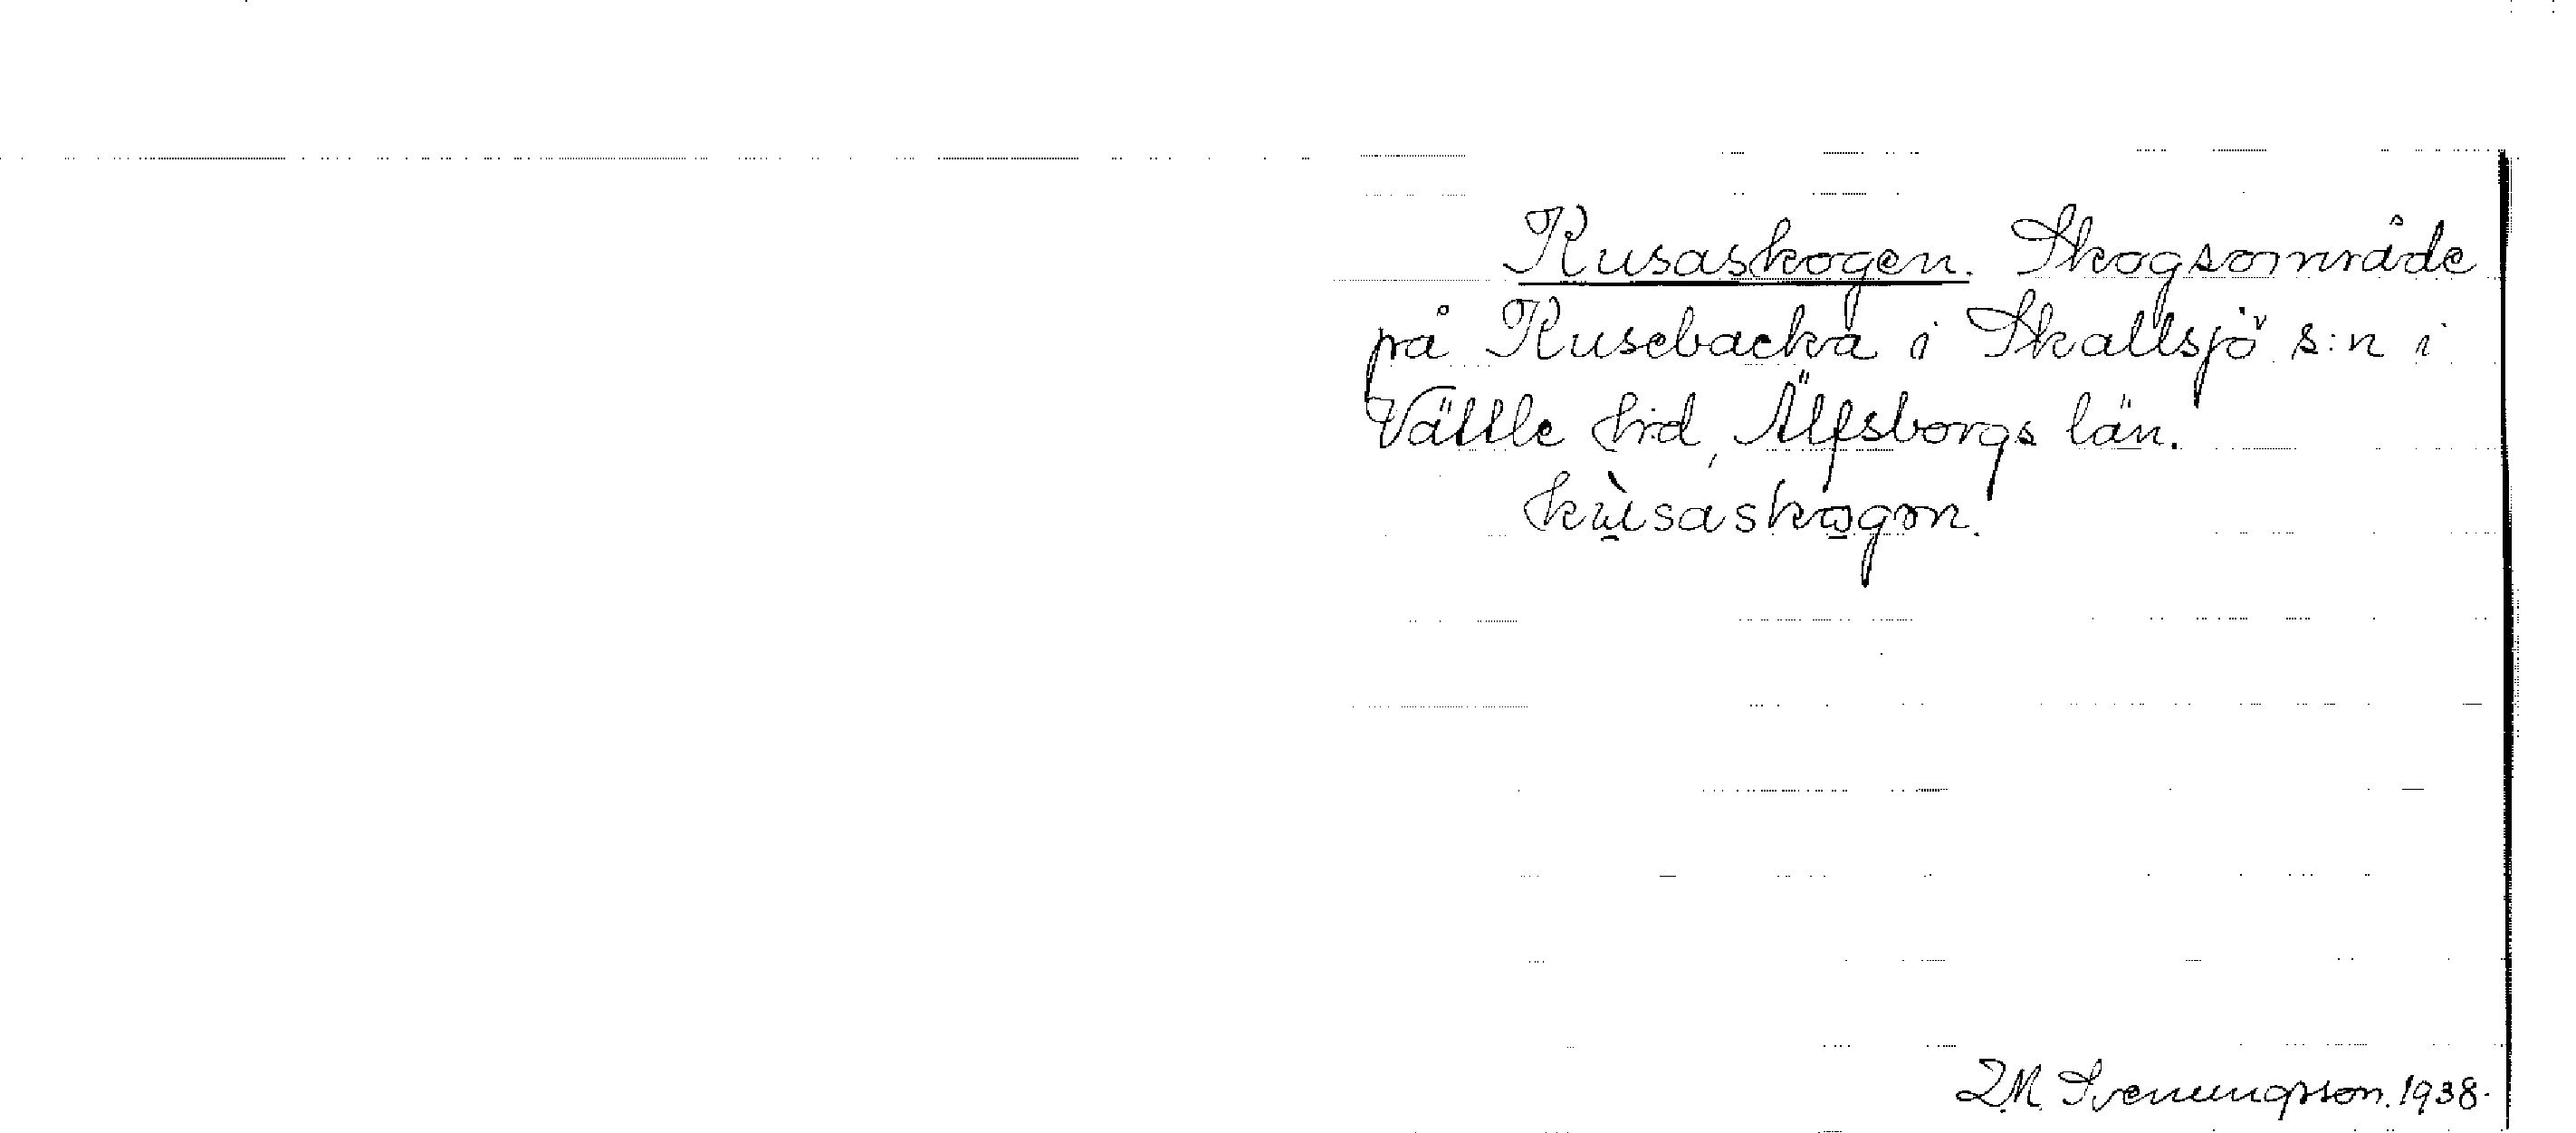 Kusaskogen. Skogsområde
på Kusebacka i Skallsjö s:n i
Vättle hrd, Älfsborgs län.
kùsaskogən.
I.M. Svenungsson. 1938.